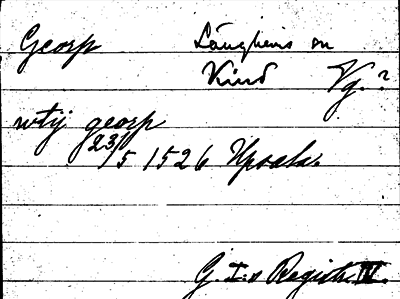 Georp Långhems sn
Kind Vg.?
wtij georp
23/5 1526 Upsala.
G. I:s Registr. IV.